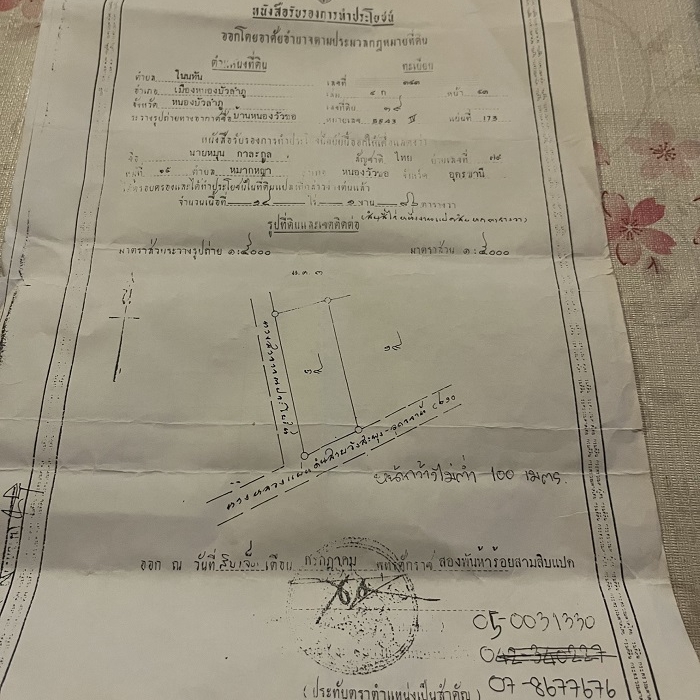 หนังสือรับรองการทำประโยชน์
ออกโดยอาศัยอำนาจตามประมวลกฎหมายที่ดิน
ตำแหน่งที่ดิน ทะเบียน
ตำบล โนนทัน เลขที่ ๓๔๓
อำเภอ เมืองหนองบัวลำภู เล่ม ๔ ก หน้า ๔๓
จังหวัด หนองบัวลำภู เลขที่ดิน ๑๘
ระวางรูปถ่ายทางอากาศชื่อ บ้านหนองวัวซอ หมายเลข 5543 IV แผ่นที่ 173
หนังสือรับรองการทำประโยชน์ฉบับนี้ออกให้เพื่อแสดงว่า
นายหมุน กาละกูล สัญชาติ ไทย บ้านเลขที่ ๗๙
หมู่ที่ ๑๕ ตำบล หมากหญ้า อำเภอ หนองวัวซอ จังหวัด อุดรธานี
ได้ครอบครองและได้ทำประโยชน์ในที่ดินแปลง
จำนวนเนื้อที่ ไร่ ๑ งาน ตารางวา
รูปที่ดินและเขตติดต่อ
มาตราส่วนระวางรูปถ่าย ๑:๕๐๐๐ มาตราส่วน ๑:๕๐๐๐
น.ส.๓
ทางหลวงแผ่นดินสายวังสะพุง-อุดรธานี
หน้ากว้างไม่ต่ำ 100 เมตร.
ออก ณ วันที่ สิบเจ็ด เดือน กรกฎาคม พุทธศักราช สองพันห้าร้อยสามสิบแปด
05-0031330
042-340227
07-8677676
(ประทับตราตำแหน่งเป็นสำคัญ)